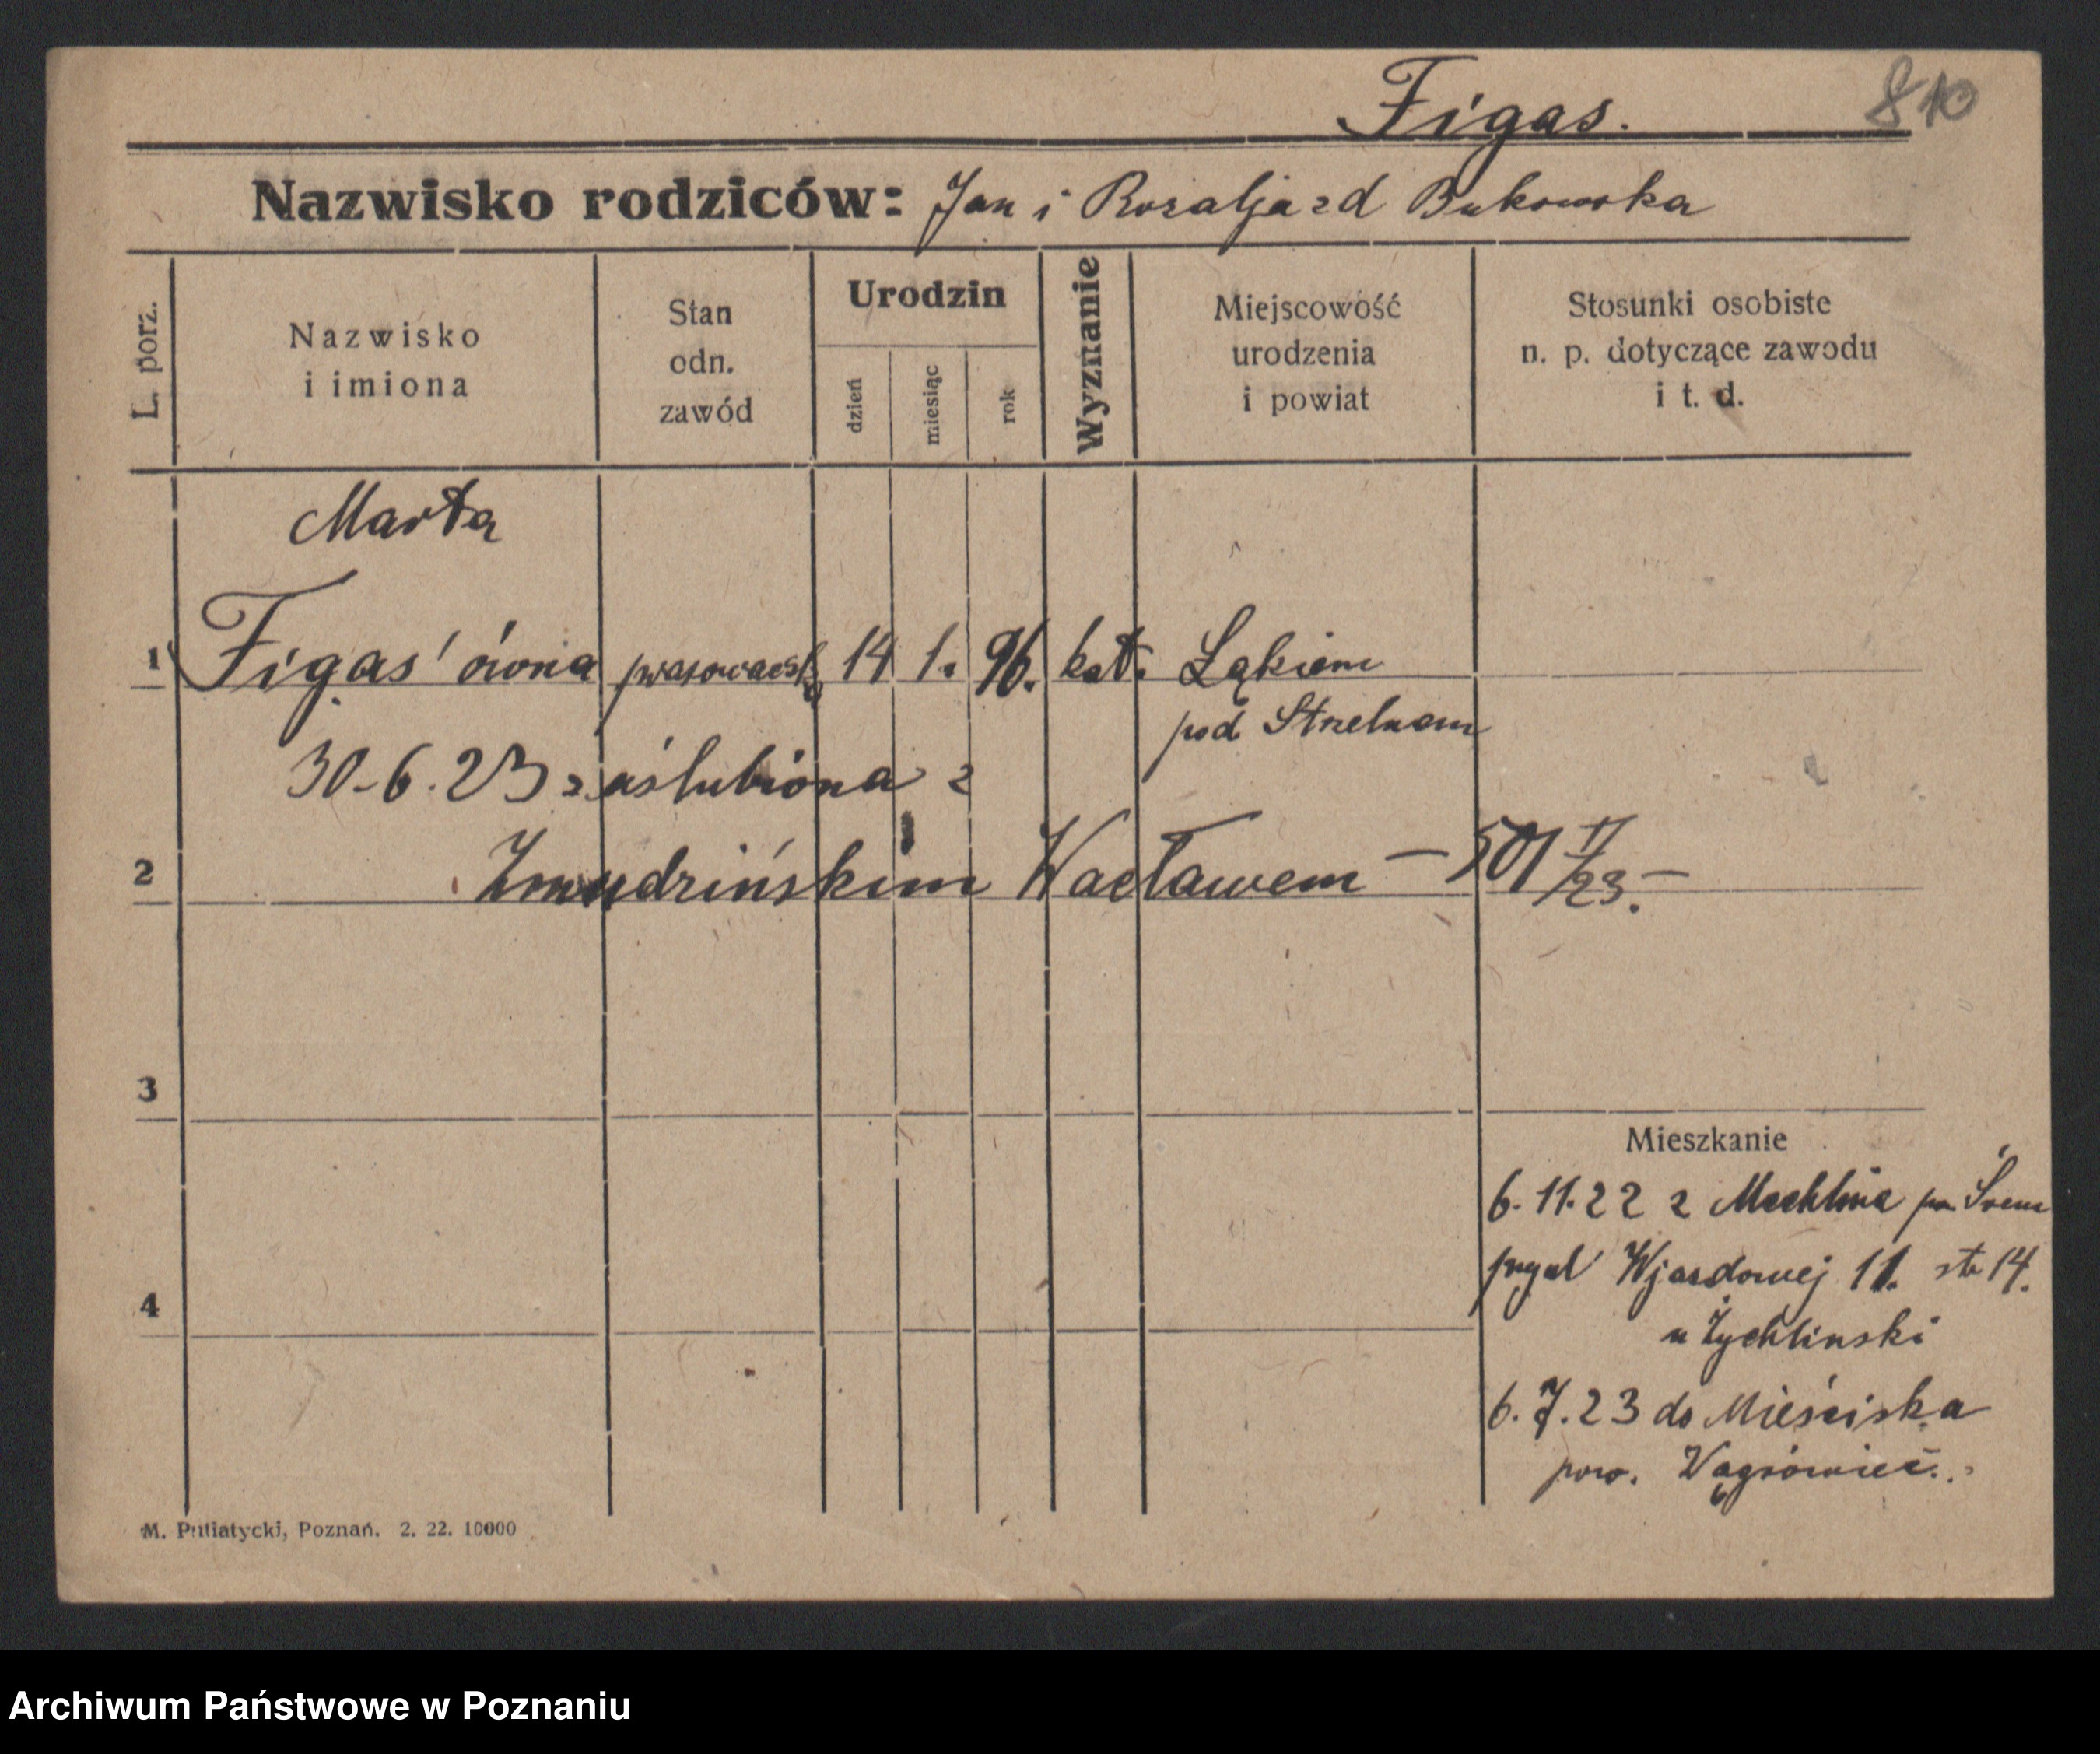 Figas. 810
Nazwisko rodziców: Jan i Rozalja zd Bukowska
L. porz.
Nazwisko
i imiona
Stan
odn.
zawód
Urodzin
dzień
miesiąc
rok
Wyznanie
Miejscowość
urodzenia
i powiat
Stosunki osobiste
n. p. dotyczące zawodu
i t. d.
Marta
1 Figas'ówna 14 1. 96. kat.
pod Strzelnem
30-6.23 zaślubiona z
2 Zmudzińskim Wacławem — 501 II/23.—
3
Mieszkanie
6.11.22 z Mechlina Śrem
Wjazdowej 11. 14.
4
u Żychlinski
6.7.23 do Mieściska
pow. Wągrówiec.
M. Putiatycki, Poznań. 2. 22. 10000
Archiwum Państwowe w Poznaniu